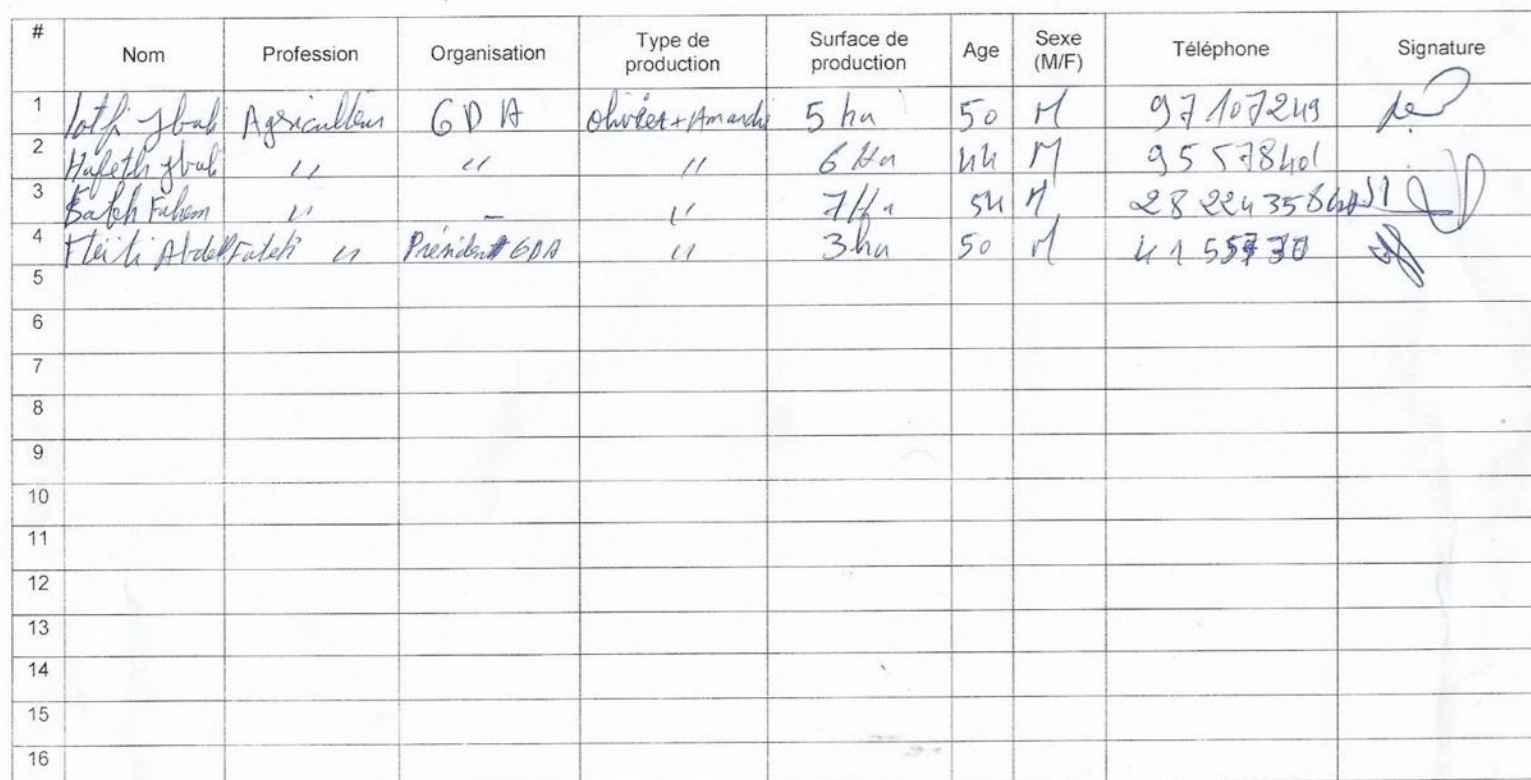 # Nom Profession Organisation Type de production Surface de production Age Sexe (M/F) Téléphone Signature
1 lotfi Jbali Agriculteur GDA olivier + Amandi 5 ha 50 M 97107249
2 Hafeth Jbali " " " 6 Ha 44 M 95578401
3 Fahem " - " 7 Ha 54 M
4 Fleiti Abdel Fateh " Président GDA " 3 ha 50 M
5
6
7
8
9
10
11
12
13
14
15
16